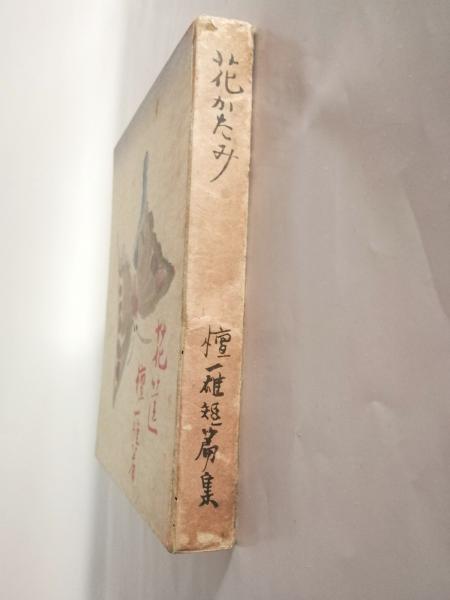 花かたみ
檀一雄短篇集
花筐
檀一雄著